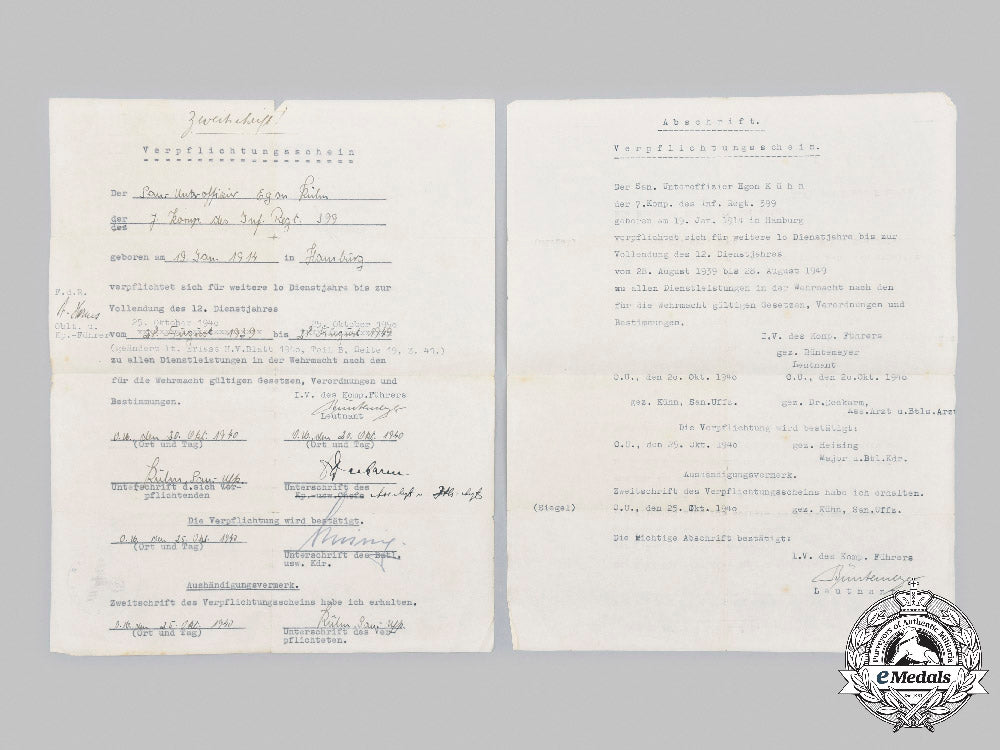 Zweitschrift!
Verpflichtungsschein
Der San. Unteroffizier Egon Kühn
der
des
7. Komp. des Inf. Regt. 399
geboren am 19. Jan. 1914 in Hamburg
verpflichtet sich für weitere 1o Dienstjahre bis zur
Vollendung des 12. Dienstjahres
F.d.R.
Oblt. u.
Kp.-Führer
25. Oktober 194o
Oktober 195o
vom 28. August 1939 bis 28. August 1949
(geändert lt. Erlass H.V.Blatt 194o, Teil B, Seite 19, z. 41.)
zu allen Dienstleistungen in der Wehrmacht nach den
für die Wehrmacht gültigen Gesetzen, Verordnungen und
Bestimmungen.
I.V. des Komp.Führers
Büntemeyer
Leutnant
O.U., den 20. Okt. 1940
(Ort und Tag)
O.U., den 20. Okt. 1940
(Ort und Tag)
Kühn, San. Uffz.
Unterschrift d.sich ver-
pflichtenden
Unterschrift des
Kp.-usw.Chefs Ass. Arzt u. Btls. Arzt
Die Verpflichtung wird bestätigt.
O.U. den 25. Okt. 1940
(Ort und Tag)
Unterschrift des Batl.
usw. Kdr.
Aushändigungsvermerk.
Zweitschrift des Verpflichtungsscheins habe ich erhalten.
O.U. den 25. Okt. 1940
(Ort und Tag)
Kühn, San. Uffz.
Unterschrift des Ver
pflichteten.
Abschrift.
Verpflichtungsschein.
Der San. Unteroffizier Egon Kühn
der 7.Komp. des Inf. Regt. 399
geboren am 19. Jan. 1914 in Hamburg
verpflichtet sich für weitere 1o Dienstjahre bis zur
Vollendung des 12. Dienstjahres
vom 28. August 1939 bis 28. August 1949
zu allen Dienstleistungen in der Wehrmacht nach den
für die Wehrmacht gültigen Gesetzen, Verordnungen und
Bestimmungen.
I.V. des Komp. Führers
gez. Büntemeyer
Leutnant
O.U., den 2o. Okt. 194o
O.U., den 2o. Okt. 194o
gez. Kühn, San.Uffz.
gez. Dr.Deekarm,
Ass.Arzt u.Btls.Arzt
Die Verpflichtung wird bestätigt:
O.U., den 25. Okt. 194o
gez. Heising
Major u.Btl.Kdr.
Aushändigungsvermerk.
Zweitschrift des Verpflichtungsscheins habe ich erhalten.
(Siegel)
O.U., den 25. Okt. 194o
gez. Kühn, San.Uffz.
Die richtige Abschrift bestätigt:
I.V. des Komp. Führers
Büntemeyer
Leutnant
Purveyors of Authentic Militaria
eMedals